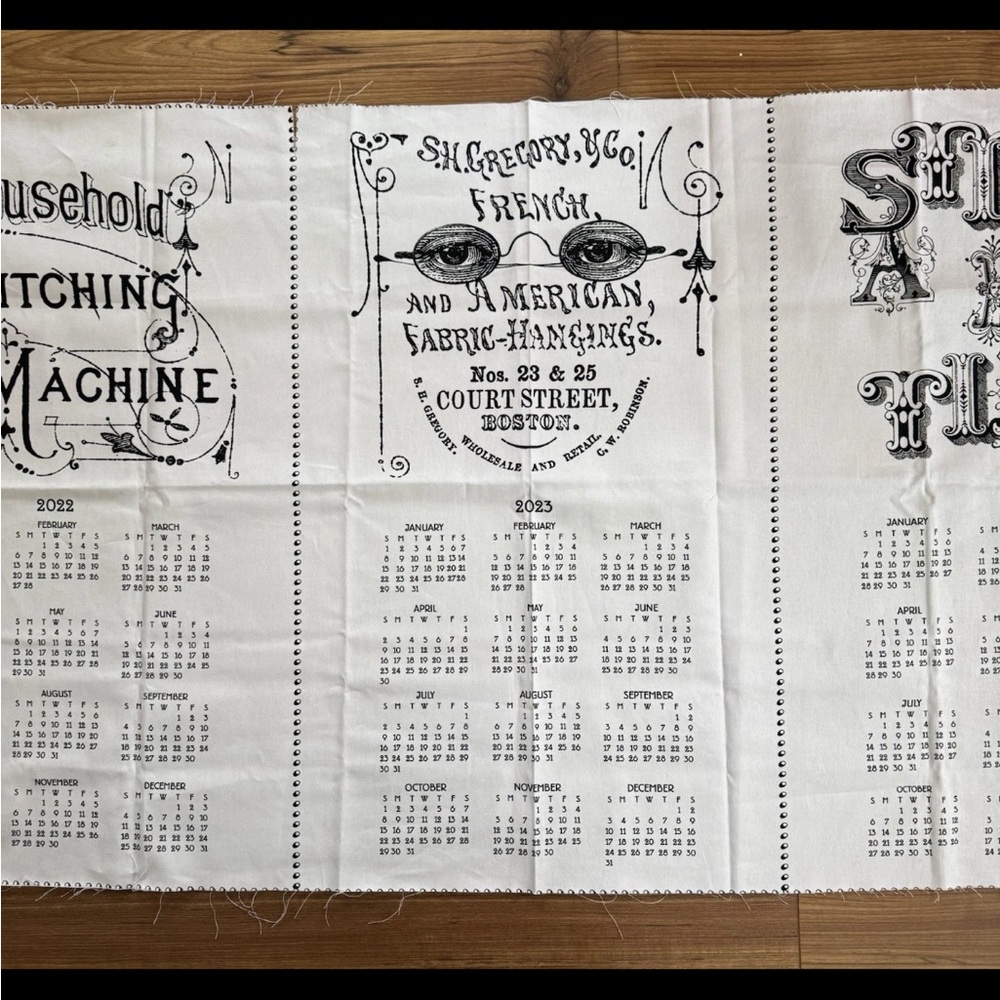 usehold
ITCHING
MACHINE
2022
FEBRUARY
S M T W T F S
1 2 3 4 5
6 7 8 9 10 11 12
13 14 15 16 17 18 19
20 21 22 23 24 25 26
27 28
MARCH
S M T W T F S
1 2 3 4 5
6 7 8 9 10 11 12
13 14 15 16 17 18 19
20 21 22 23 24 25 26
27 28 29 30 31
MAY
S M T W T F S
1 2 3 4 5 6 7
8 9 10 11 12 13 14
15 16 17 18 19 20 21
22 23 24 25 26 27 28
29 30 31
JUNE
S M T W T F S
1 2 3 4
5 6 7 8 9 10 11
12 13 14 15 16 17 18
19 20 21 22 23 24 25
26 27 28 29 30
AUGUST
S M T W T F S
1 2 3 4 5 6
7 8 9 10 11 12 13
14 15 16 17 18 19 20
21 22 23 24 25 26 27
28 29 30 31
SEPTEMBER
S M T W T F S
1 2 3
4 5 6 7 8 9 10
11 12 13 14 15 16 17
18 19 20 21 22 23 24
25 26 27 28 29 30
NOVEMBER
S M T W T F S
1 2 3 4 5
6 7 8 9 10 11 12
13 14 15 16 17 18 19
20 21 22 23 24 25 26
27 28 29 30
DECEMBER
S M T W T F S
1 2 3
4 5 6 7 8 9 10
11 12 13 14 15 16 17
18 19 20 21 22 23 24
25 26 27 28 29 30 31
S.H. GREGORY, & CO.
FRENCH,
AND AMERICAN,
FABRIC-HANGINGS.
Nos. 23 & 25
COURT STREET,
BOSTON.
S. H. GREGORY. WHOLESALE AND RETAIL. C. W. ROBINSON.
2023
JANUARY
S M T W T F S
1 2 3 4 5 6 7
8 9 10 11 12 13 14
15 16 17 18 19 20 21
22 23 24 25 26 27 28
29 30 31
FEBRUARY
S M T W T F S
1 2 3 4
5 6 7 8 9 10 11
12 13 14 15 16 17 18
19 20 21 22 23 24 25
26 27 28
MARCH
S M T W T F S
1 2 3 4
5 6 7 8 9 10 11
12 13 14 15 16 17 18
19 20 21 22 23 24 25
26 27 28 29 30 31
APRIL
S M T W T F S
1
2 3 4 5 6 7 8
9 10 11 12 13 14 15
16 17 18 19 20 21 22
23 24 25 26 27 28 29
30
MAY
S M T W T F S
1 2 3 4 5 6
7 8 9 10 11 12 13
14 15 16 17 18 19 20
21 22 23 24 25 26 27
28 29 30 31
JUNE
S M T W T F S
1 2 3
4 5 6 7 8 9 10
11 12 13 14 15 16 17
18 19 20 21 22 23 24
25 26 27 28 29 30
JULY
S M T W T F S
1
2 3 4 5 6 7 8
9 10 11 12 13 14 15
16 17 18 19 20 21 22
23 24 25 26 27 28 29
30 31
AUGUST
S M T W T F S
1 2 3 4 5
6 7 8 9 10 11 12
13 14 15 16 17 18 19
20 21 22 23 24 25 26
27 28 29 30 31
SEPTEMBER
S M T W T F S
1 2
3 4 5 6 7 8 9
10 11 12 13 14 15 16
17 18 19 20 21 22 23
24 25 26 27 28 29 30
OCTOBER
S M T W T F S
1 2 3 4 5 6 7
8 9 10 11 12 13 14
15 16 17 18 19 20 21
22 23 24 25 26 27 28
29 30 31
NOVEMBER
S M T W T F S
1 2 3 4
5 6 7 8 9 10 11
12 13 14 15 16 17 18
19 20 21 22 23 24 25
26 27 28 29 30
DECEMBER
S M T W T F S
1 2
3 4 5 6 7 8 9
10 11 12 13 14 15 16
17 18 19 20 21 22 23
24 25 26 27 28 29 30
31
JANUARY
S M T W T F S
1 2 3 4 5 6
7 8 9 10 11 12 13
14 15 16 17 18 19 20
21 22 23 24 25 26 27
28 29 30 31
APRIL
S M T W T F S
1 2 3 4 5 6
7 8 9 10 11 12 13
14 15 16 17 18 19 20
21 22 23 24 25 26 27
28 29 30
JULY
S M T W T F S
1 2 3 4 5 6
7 8 9 10 11 12 13
14 15 16 17 18 19 20
21 22 23 24 25 26 27
28 29 30 31
OCTOBER
S M T W T F S
1 2 3 4 5
6 7 8 9 10 11 12
13 14 15 16 17 18 19
20 21 22 23 24 25 26
27 28 29 30 31